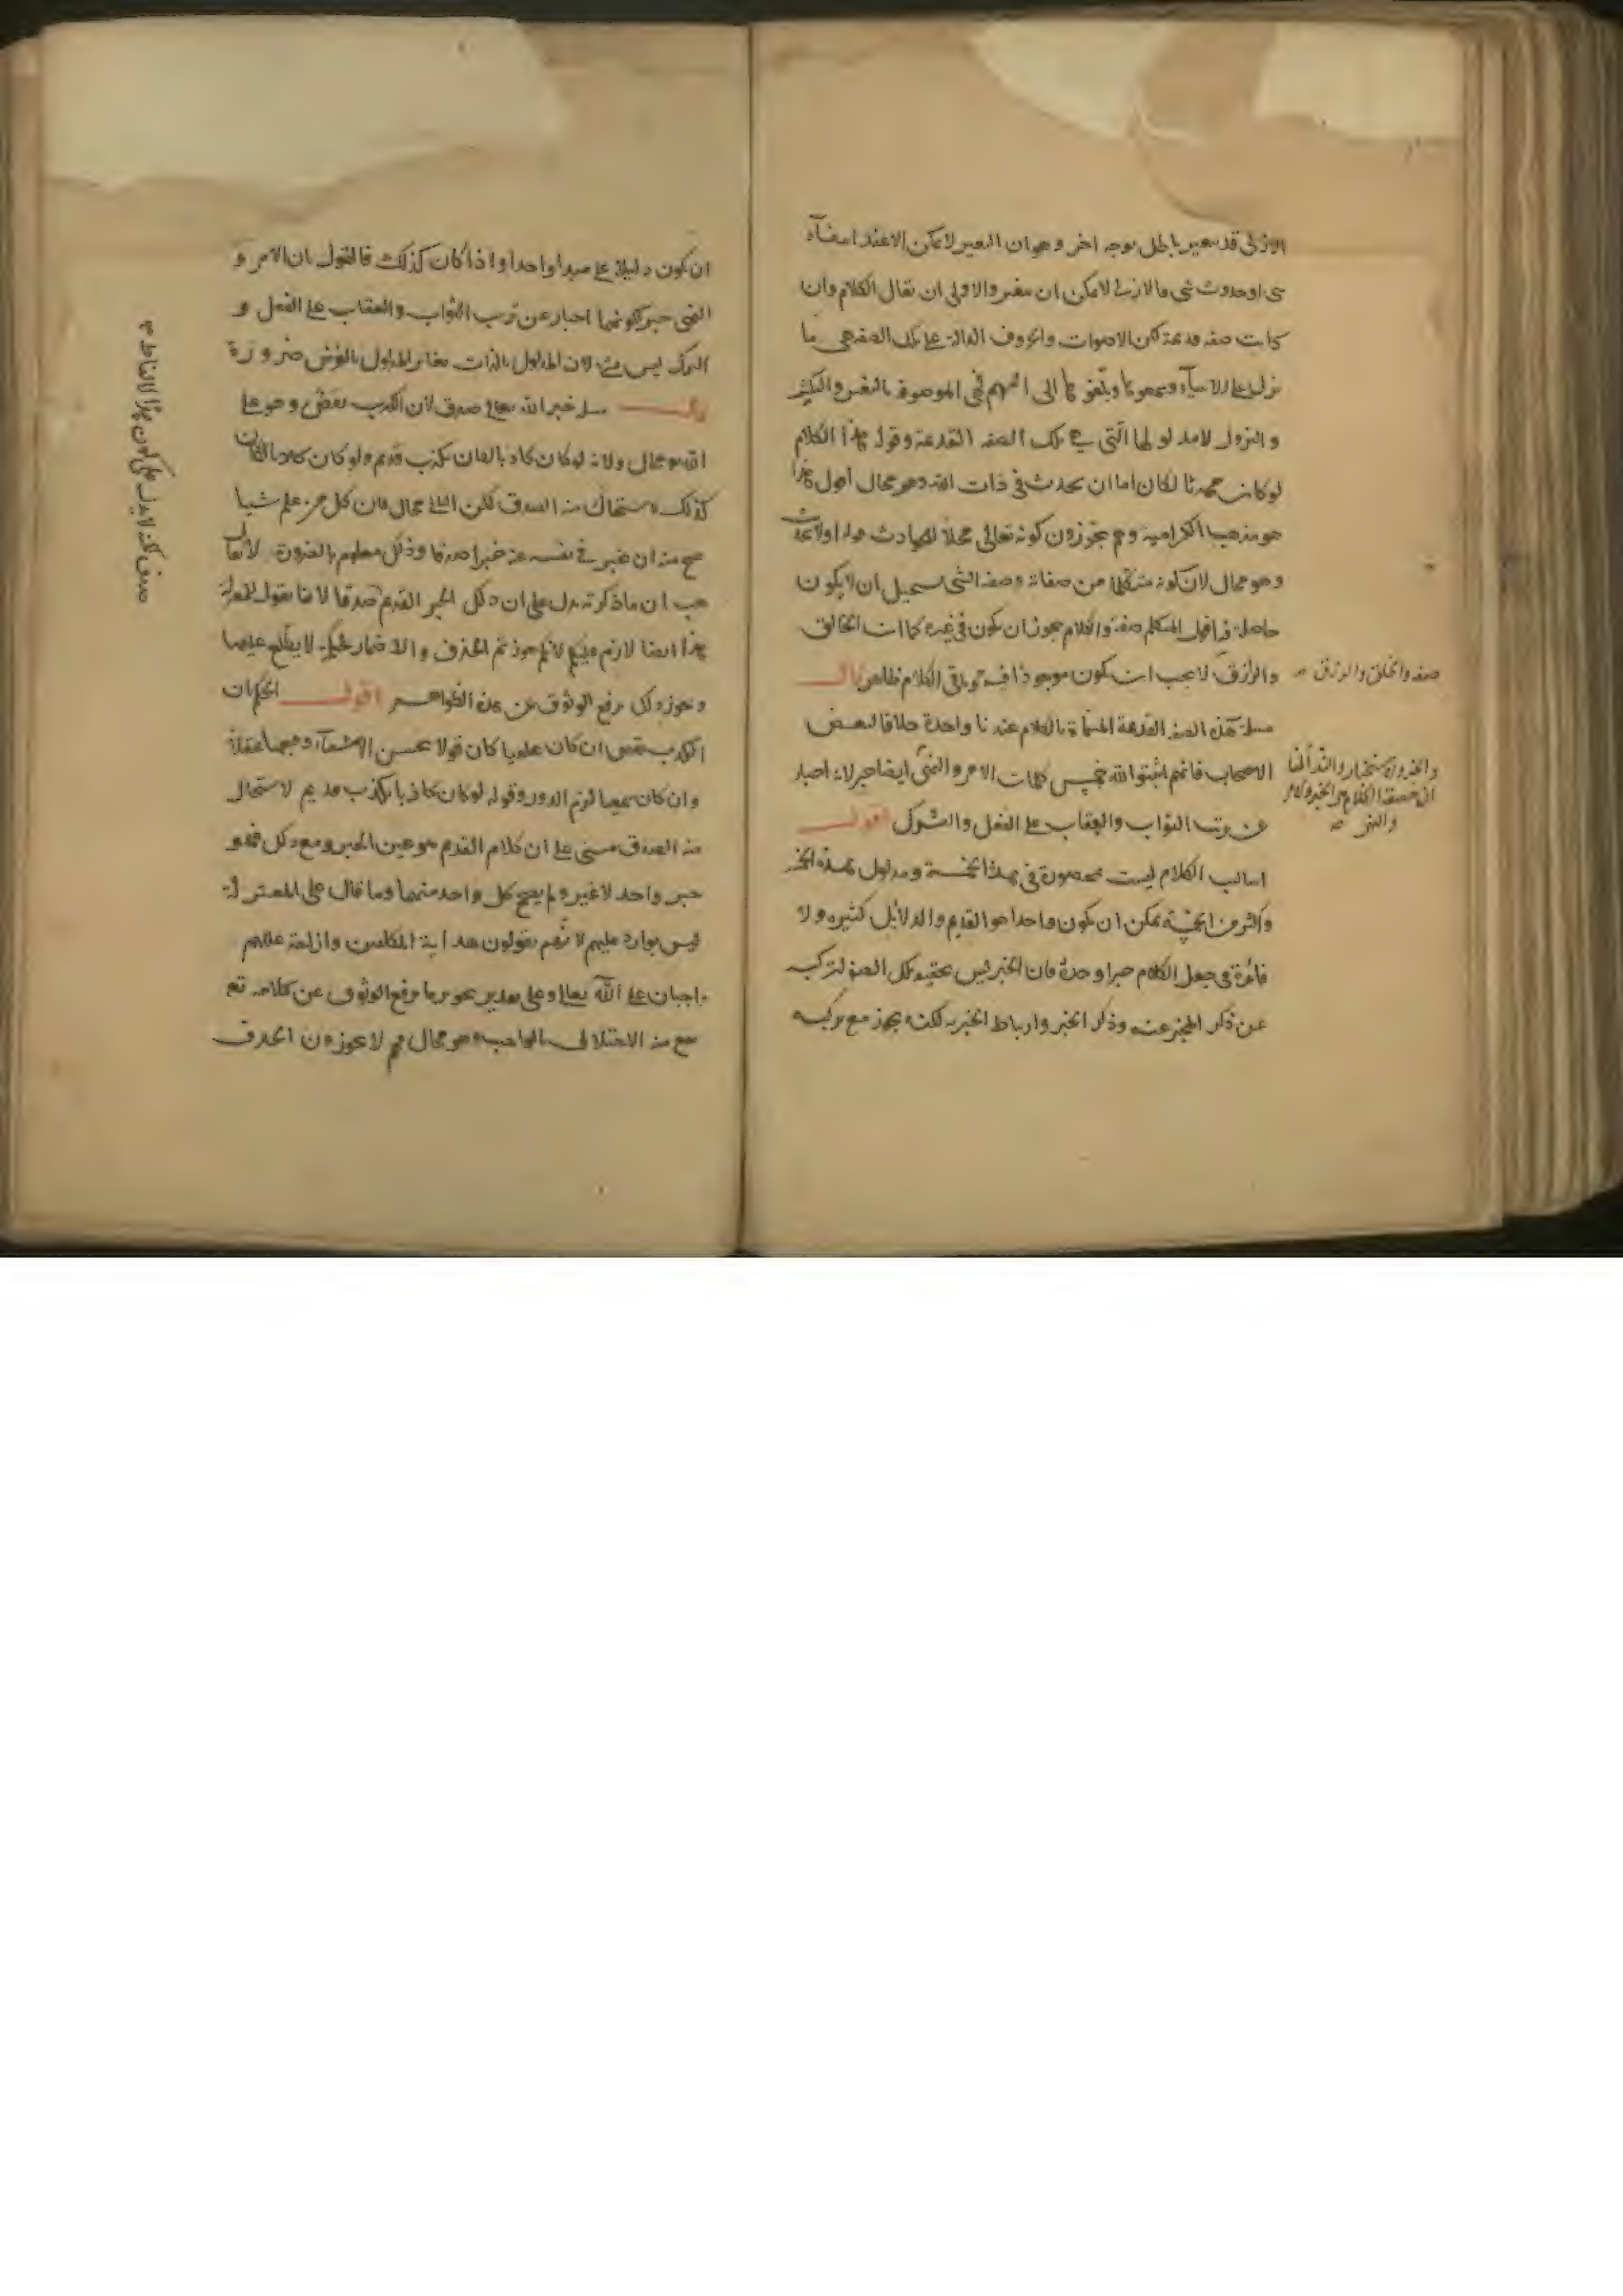 الازلى قد تغير باطل بوجه اخر وهو ان التغير لا يمكن الا عند انتفاء
شى او حدوث شى فالازلى لا يمكن ان يتغير والاولى ان يقال الكلام وان
كانت صفة قديمة لكن الاصوات والحروف الدالة على تلك الصفة هى ما
نزل على الانبياء وسمعوها وبلغوها الى اممهم فهى الموصوفة بالتغير والتكثر
والنزول لا مدلولها التى هى تلك الصفة القديمة وقوله بهذا الكلام
لو كانت محدثا لكان اما ان يحدث فى ذات الله وهو محال اقول هذا
هو مذهب الكرامية وهم يجوزون كونه تعالى محلا للحوادث قوله اولا يحدث
وهو محال لان كونه متكلما من صفاته وصفة الشى يستحيل ان لا يكون
حاصلة فيه اقول المتكلم صفة والكلام يجوز ان يكون فى غيره كما ان الخالق
صفة والخلق والرزق
والرازق لا يجب ان يكون موجودا فيه وباقى الكلام ظاهر قال
مسئلة هذه الصفة القديمة المسماة بالكلام عندنا واحدة خلافا لبعض
الاصحاب فانهم اثبتوا لله خمس كلمات الامر والنهى
والخبر والاستخبار والنداء لنا
ان حقيقة الكلام هو الخبر والامر
والنهى
ايضا خبر لانه اخبار
عن ترتب الثواب والعقاب على الفعل والترك اقول
اساليب الكلام ليست محصورة فى هذه الخمسة ومدلول هذه الخمسة
واكثر من الخمسة يمكن ان يكون واحدا هو القديم والدلائل كثيرة ولا
فائدة فى جعل الكلام خبرا وحده فان الخبر ليس بحقيقة تلك الصفة لتركبه
عن ذكر المخبر عنه وذكر الخبر وارتباط الخبر به لكنه يجوز مع تركبه
ان يكون دليلا على مبدا واحد واذا كان كذلك فالقول بان الامر و
النهى خبر لكونهما اخبار عن ترتب الثواب والعقاب على الفعل و
الترك ليس بشى لان المدلول بالذات مغاير للمدلول بالعرض ضرورة
قال مسئلة خبر الله تعالى صدق لان الكذب نقص وهو على
الله محال ولانه لو كان كاذبا لكان بكذب قديم ولو كان كاذبا لكان
كذلك لاستحال منه الصدق لكن التالى محال فان كل من علم شيئا
صح منه ان يخبر فى نفسه عنه خبرا صدقا وذلك معلوم بالضرورة لا يقال
هب ان ما ذكرته يدل على ان ذلك الخبر القديم صدقا
صدق لكنه لا يدل على كون هذه الالفاظ
لانا نقول للمعتزلة
هذا ايضا لازم عليكم لانكم جوزتم الحذف والاضمار لحكمة لا يطلع عليها
وتجوز ذلك يرفع الوثوق عن هذه الظواهر اقول الحكم بان
الكذب نقص ان كان عقليا كان قولا بحسن الاشياء وقبحها عقلا
وان كان سمعيا لزم الدور وقوله لو كان كاذبا بكذب قديم لاستحال
منه الصدق مبنى على ان كلام القديم هو عين الخبر ومع ذلك فهو
خبر واحد لا غير ولم يصح كل واحد منهما وما قال على المعتزلة
ليس بوارد عليهم لانهم يقولون هداية المكلفين وازاحة عللهم
واجبان على الله تعالى وعلى تقدير تجويز ما يرفع الوثوق عن كلامه تع
يقع منه الاخلال بالواجب وهو محال فهم لا يجوزون الحذف